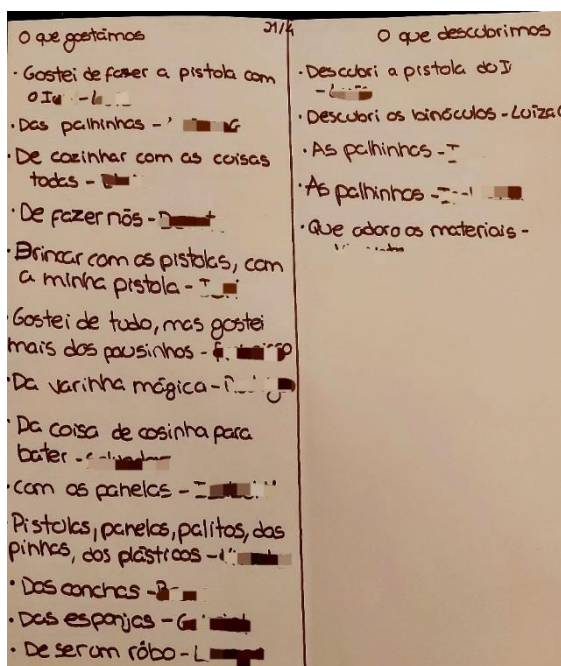 21/4
O que gostámos
· Gostei de fazer a pistola com
o
· Das palhinhas -
· De cozinhar com as coisas
todas -
· De fazer nós -
· Brincar com as pistolas, com
a minha pistola -
· Gostei de tudo, mas gostei
mais dos pausinhos -
· Da varinha mágica -
· Da coisa de cosinha para
bater -
· Com as panelas -
Pistolas, panelas, palitos, das
pinhas, dos plásticos -
· Das conchas -
· Das esponjas -
· De ser um rôbo -
O que descubrimos
· Descubri a pistola do
· Descubri os binóculos - Luiza
· As palhinhas -
· As palhinhas -
· Que adoro os materiais -